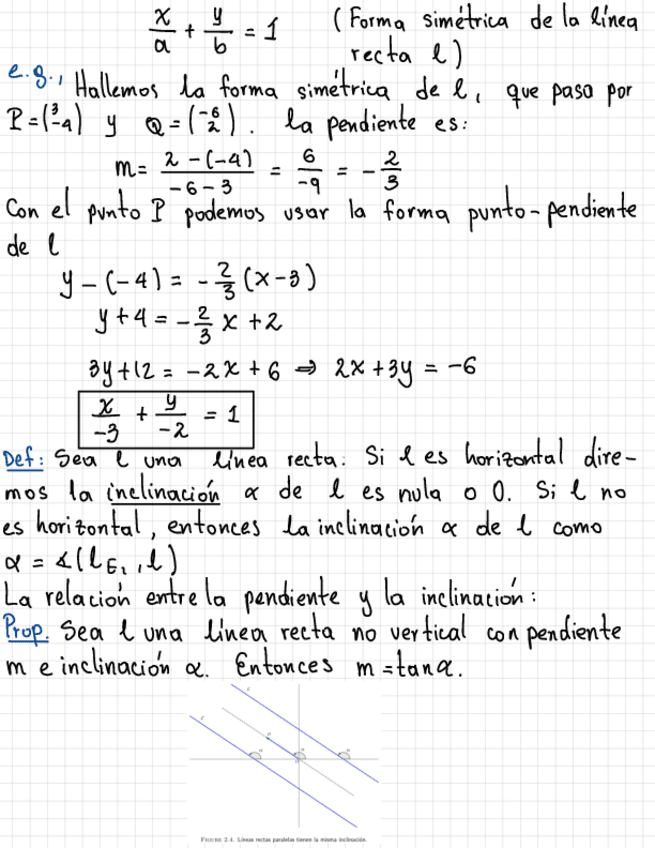 x/a + y/b = 1 (Forma simétrica de la línea
recta l)
e.g., Hallemos la forma simétrica de l, que pasa por
P=(3 -4) y Q=(-6 2). la pendiente es:
m= 2-(-4)/-6-3 = 6/-9 = -2/3
Con el punto P podemos usar la forma punto-pendiente
de l
y-(-4) = -2/3(x-3)
y+4 = -2/3 x +2
3y+12 = -2x+6 ⇒ 2x+3y = -6
x/-3 + y/-2 = 1
Def: Sea l una línea recta. Si l es horizontal dire-
mos la inclinación α de l es nula o 0. Si l no
es horizontal, entonces la inclinación α de l como
α = ∡(l_E₁, l)
La relación entre la pendiente y la inclinación:
Prop. Sea l una línea recta no vertical con pendiente
m e inclinación α. Entonces m=tanα.
Figure 2.4. Líneas rectas paralelas tienen la misma inclinación.